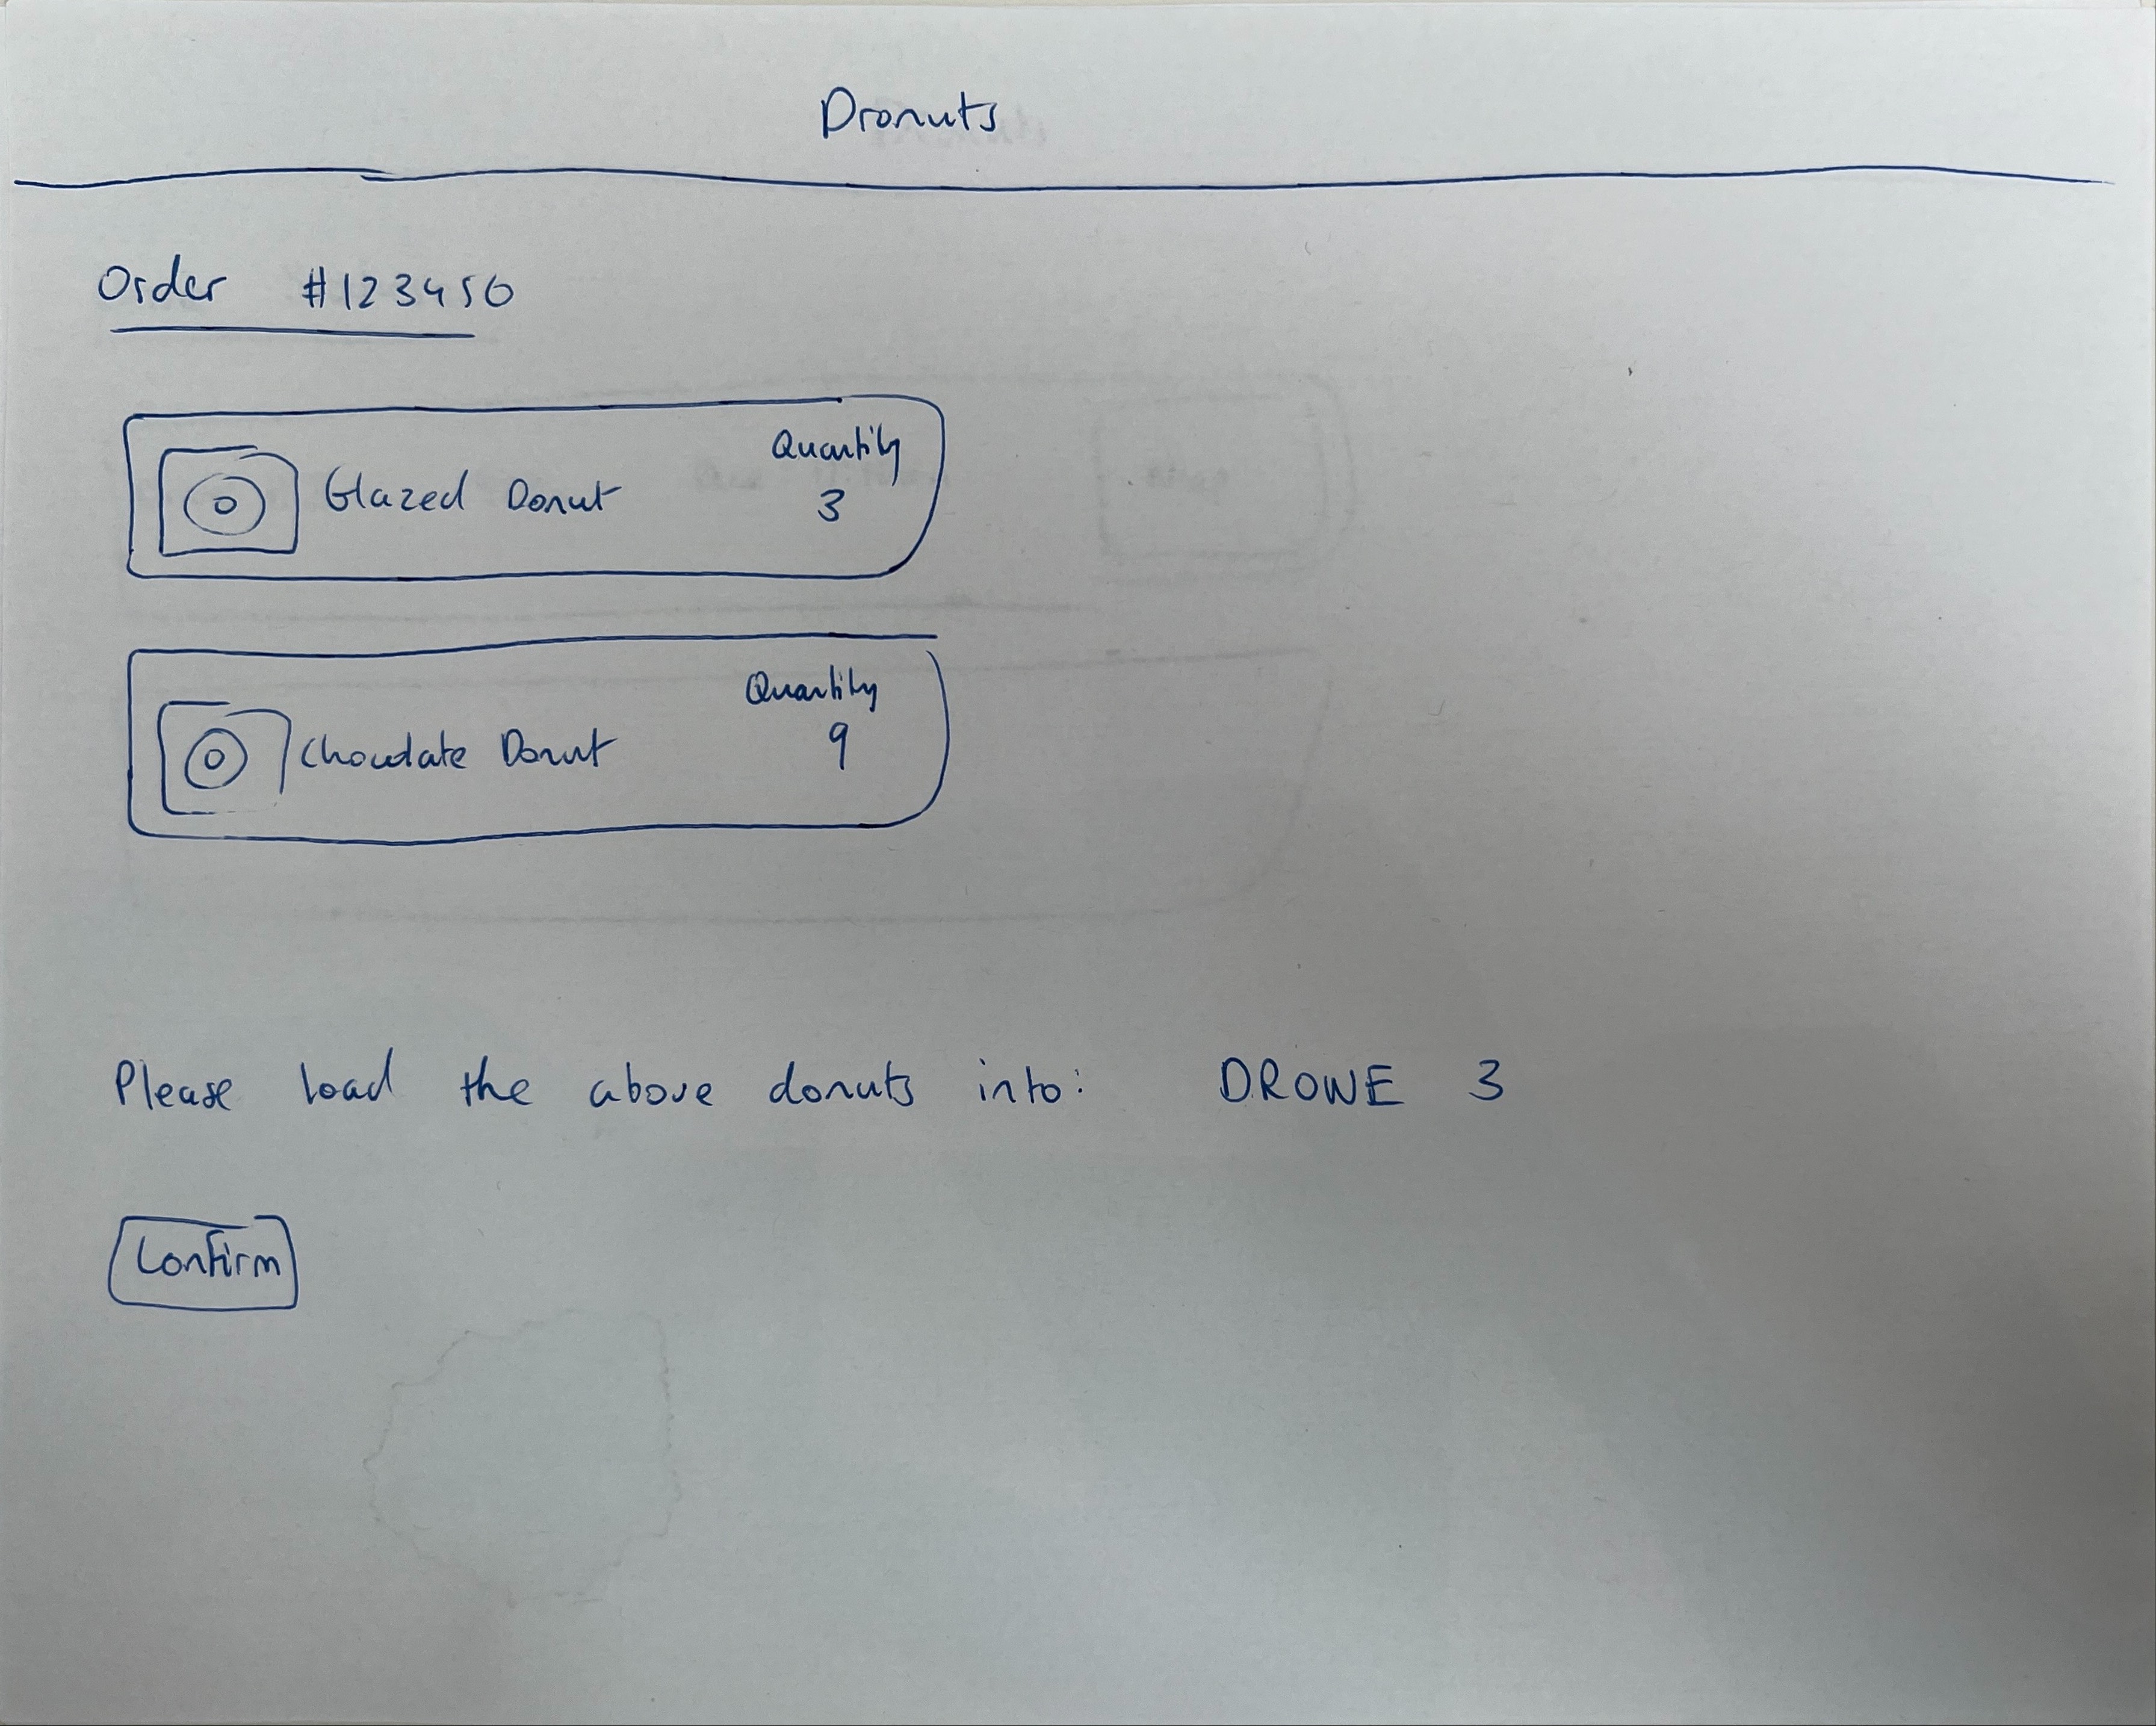 Dronuts
Order #123450
Quantity
Glazed Donut 3
Quantity
Chocolate Donut 9
Please load the above donuts into: DRONE 3
Confirm